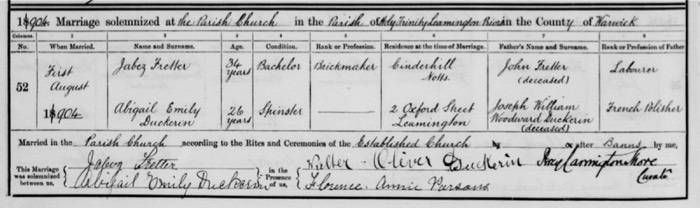 1904. Marriage solemnized at the Parish Church in the Parish of Holy Trinity Leamington Priors in the County of Warwick
Columns 1 2 3 4 5 6 7 8
No. When Married. Name and Surname. Age. Condition. Rank or Profession. Residence at the time of Marriage. Father's Name and Surname. Rank or Profession of Father
52 First August 1904 Jabez Fretter 34 years Bachelor Brickmaker Cinderhill Notts. John Fretter (deceased) Labourer
Abigail Emily Duckerin 26 years Spinster 2 Oxford Street Leamington Joseph William Woodward Duckerin (deceased) French Polisher
Married in the Parish Church according to the Rites and Ceremonies of the Established Church by or after Banns by me,
This Marriage was solemnized between us, Jabez Fretter Abigail Emily Duckerin in the Presence of us, Oliver Duckerin Florence Annie Parsons Curate